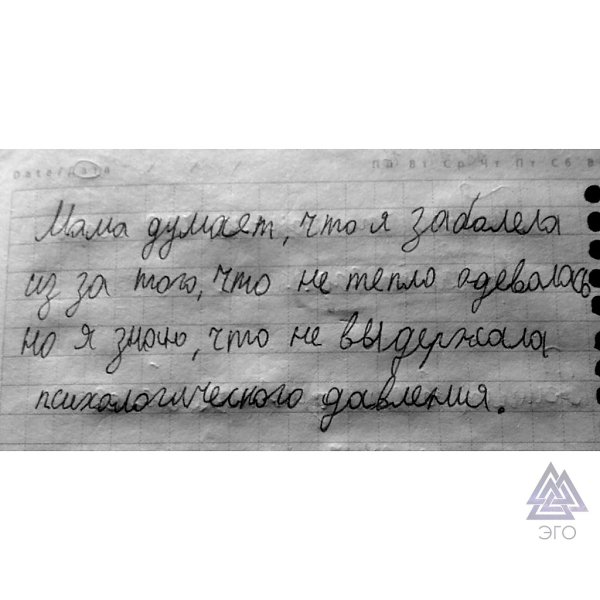 Date/Дата / / /
Пн Вт Ср Чт Пт Сб В
Мама думает, что я забалела
из за того, что не тепло одевалась
но я знаю, что не выдержала
психологического давления.
ЭГО